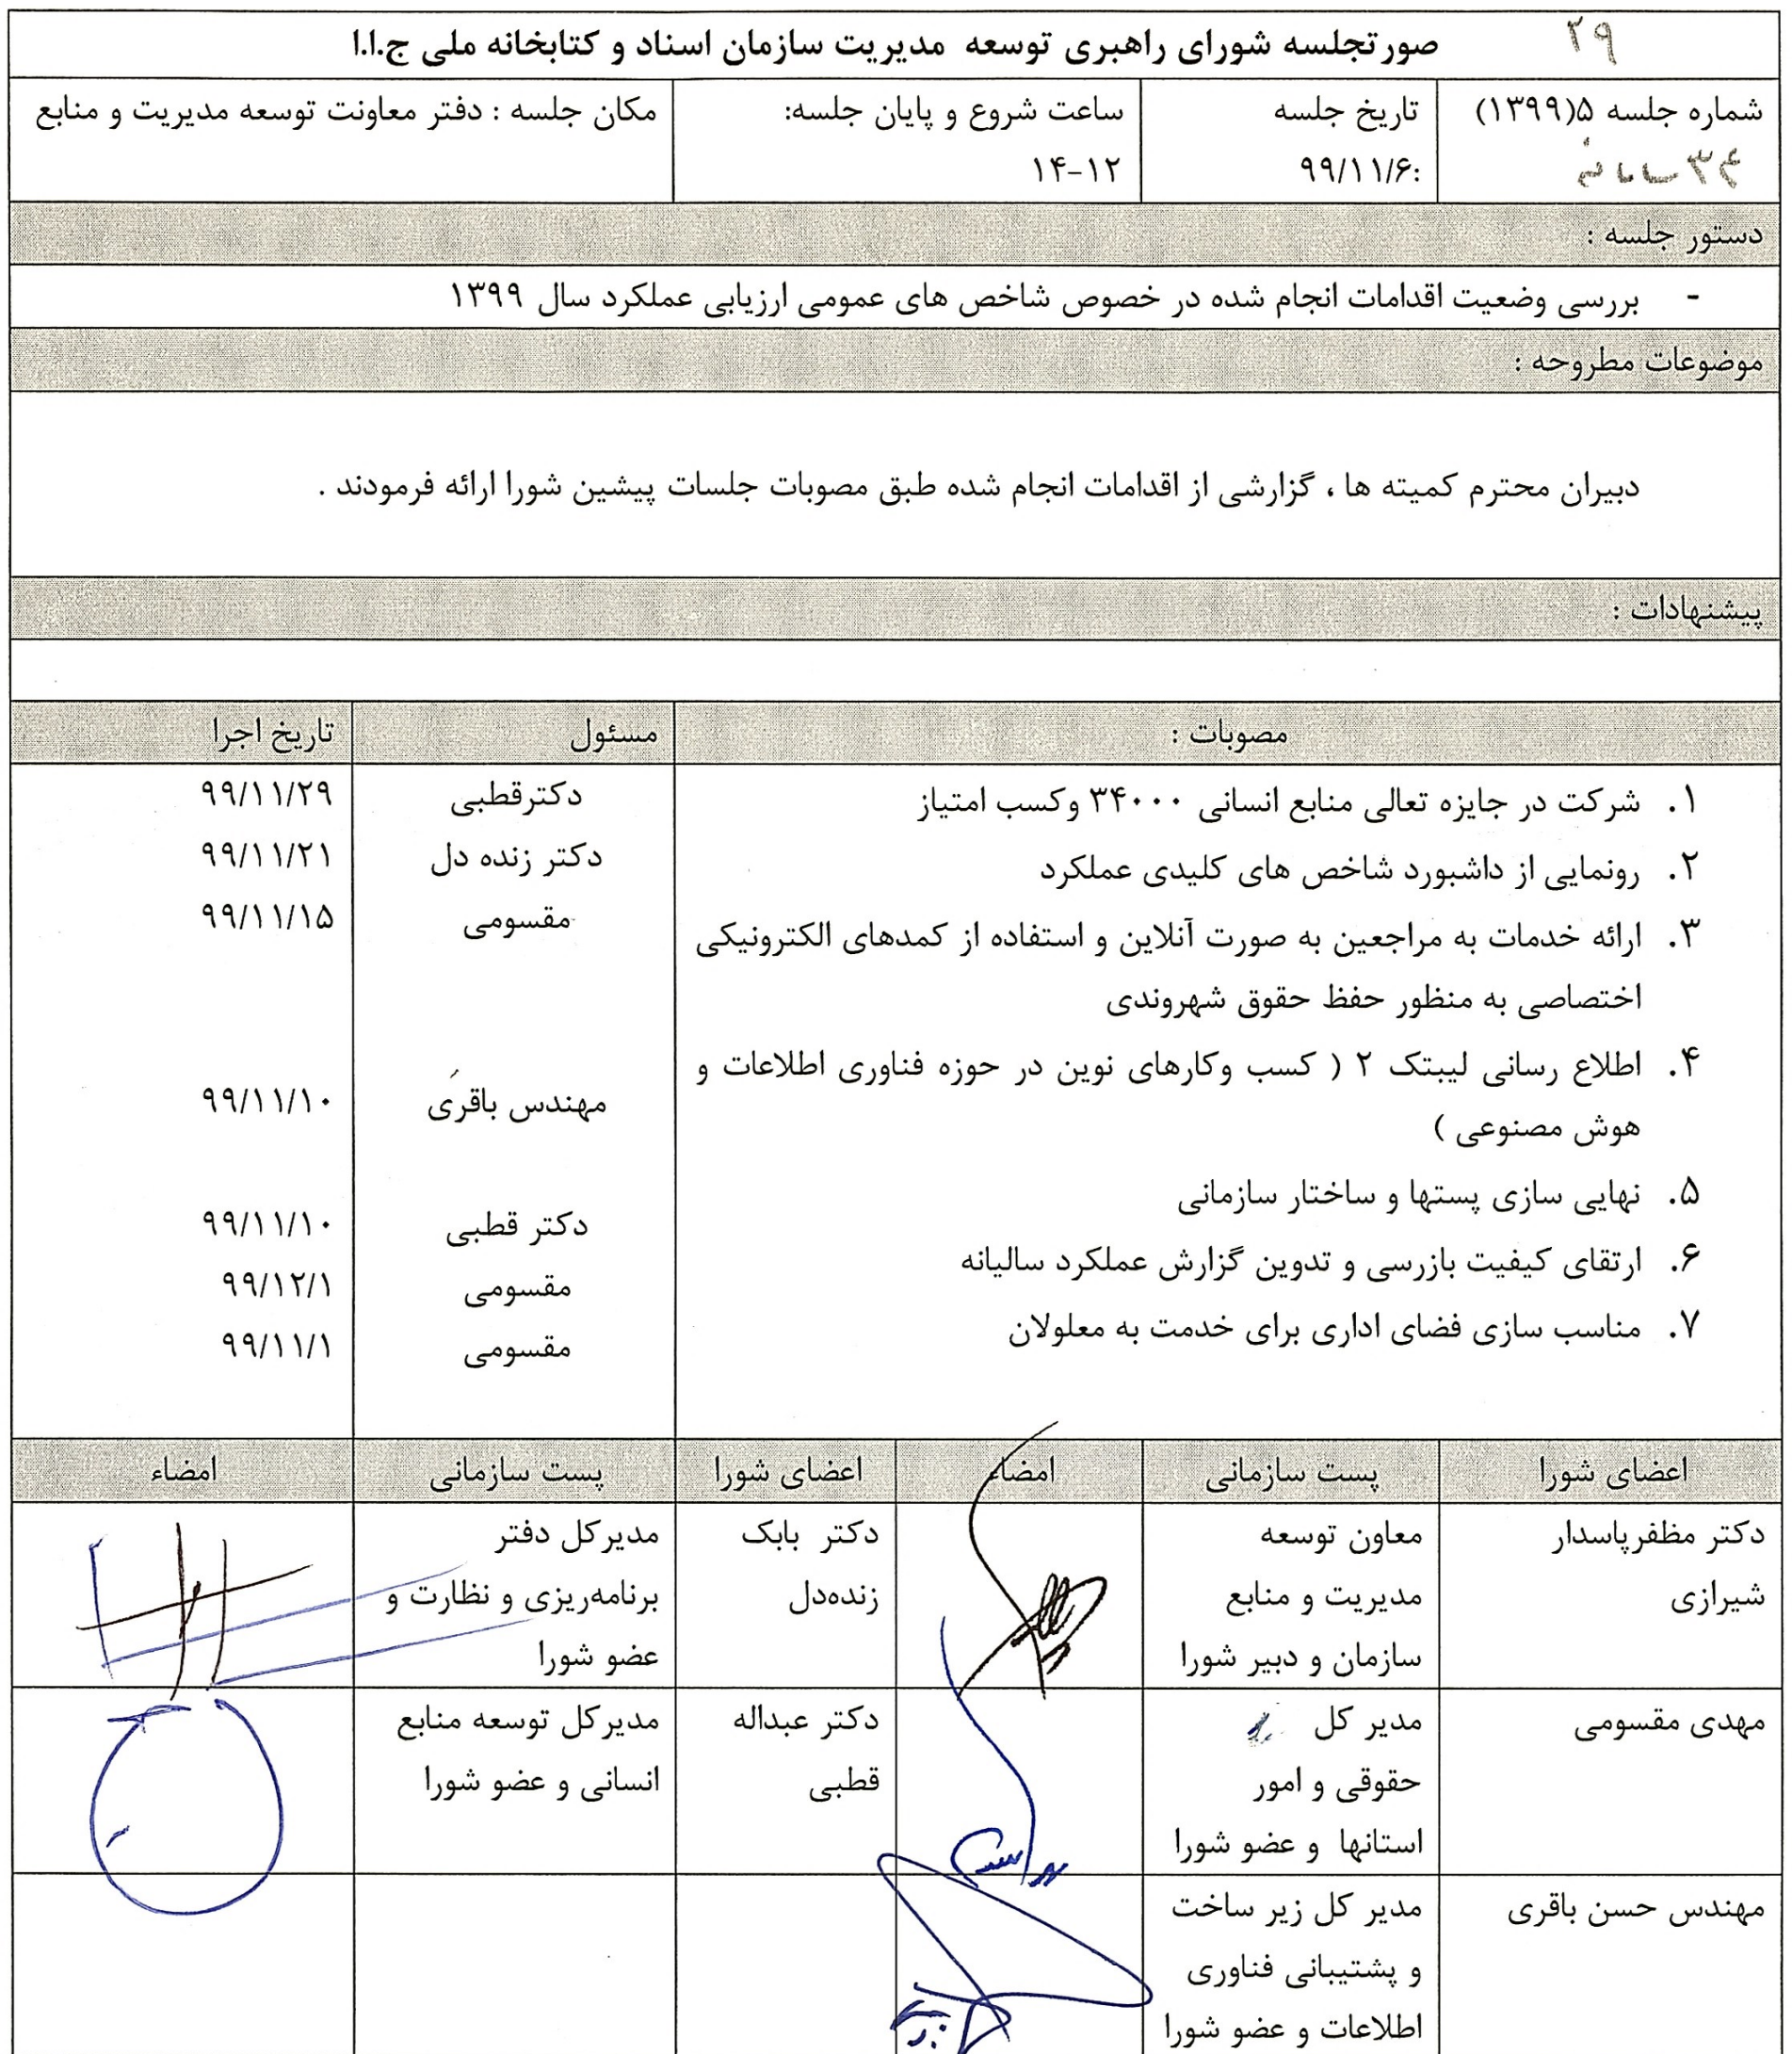 ۲۹
صورتجلسه شورای راهبری توسعه مدیریت سازمان اسناد و کتابخانه ملی ج.ا.ا
شماره جلسه ۵(۱۳۹۹)
تاریخ جلسه
:۹۹/۱۱/۶
ساعت شروع و پایان جلسه:
۱۲-۱۴
مکان جلسه : دفتر معاونت توسعه مدیریت و منابع
دستور جلسه :
- بررسی وضعیت اقدامات انجام شده در خصوص شاخص های عمومی ارزیابی عملکرد سال ۱۳۹۹
موضوعات مطروحه :
دبیران محترم کمیته ها ، گزارشی از اقدامات انجام شده طبق مصوبات جلسات پیشین شورا ارائه فرمودند .
پیشنهادات :
مصوبات : مسئول تاریخ اجرا
۱. شرکت در جایزه تعالی منابع انسانی ۳۴۰۰۰ وکسب امتیاز دکترقطبی ۹۹/۱۱/۲۹
۲. رونمایی از داشبورد شاخص های کلیدی عملکرد دکتر زنده دل ۹۹/۱۱/۲۱
۳. ارائه خدمات به مراجعین به صورت آنلاین و استفاده از کمدهای الکترونیکی مقسومی ۹۹/۱۱/۱۵
اختصاصی به منظور حفظ حقوق شهروندی
۴. اطلاع رسانی لیبتک ۲ ( کسب وکارهای نوین در حوزه فناوری اطلاعات و مهندس باقری ۹۹/۱۱/۱۰
هوش مصنوعی )
۵. نهایی سازی پستها و ساختار سازمانی دکتر قطبی ۹۹/۱۱/۱۰
۶. ارتقای کیفیت بازرسی و تدوین گزارش عملکرد سالیانه مقسومی ۹۹/۱۲/۱
۷. مناسب سازی فضای اداری برای خدمت به معلولان مقسومی ۹۹/۱۱/۱
اعضای شورا پست سازمانی امضاء اعضای شورا پست سازمانی امضاء
دکتر مظفرپاسدار معاون توسعه دکتر بابک مدیرکل دفتر
شیرازی مدیریت و منابع زنده‌دل برنامه‌ریزی و نظارت و
سازمان و دبیر شورا عضو شورا
مهدی مقسومی مدیر کل دکتر عبداله مدیرکل توسعه منابع
حقوقی و امور قطبی انسانی و عضو شورا
استانها و عضو شورا
مهندس حسن باقری مدیر کل زیر ساخت
و پشتیبانی فناوری
اطلاعات و عضو شورا